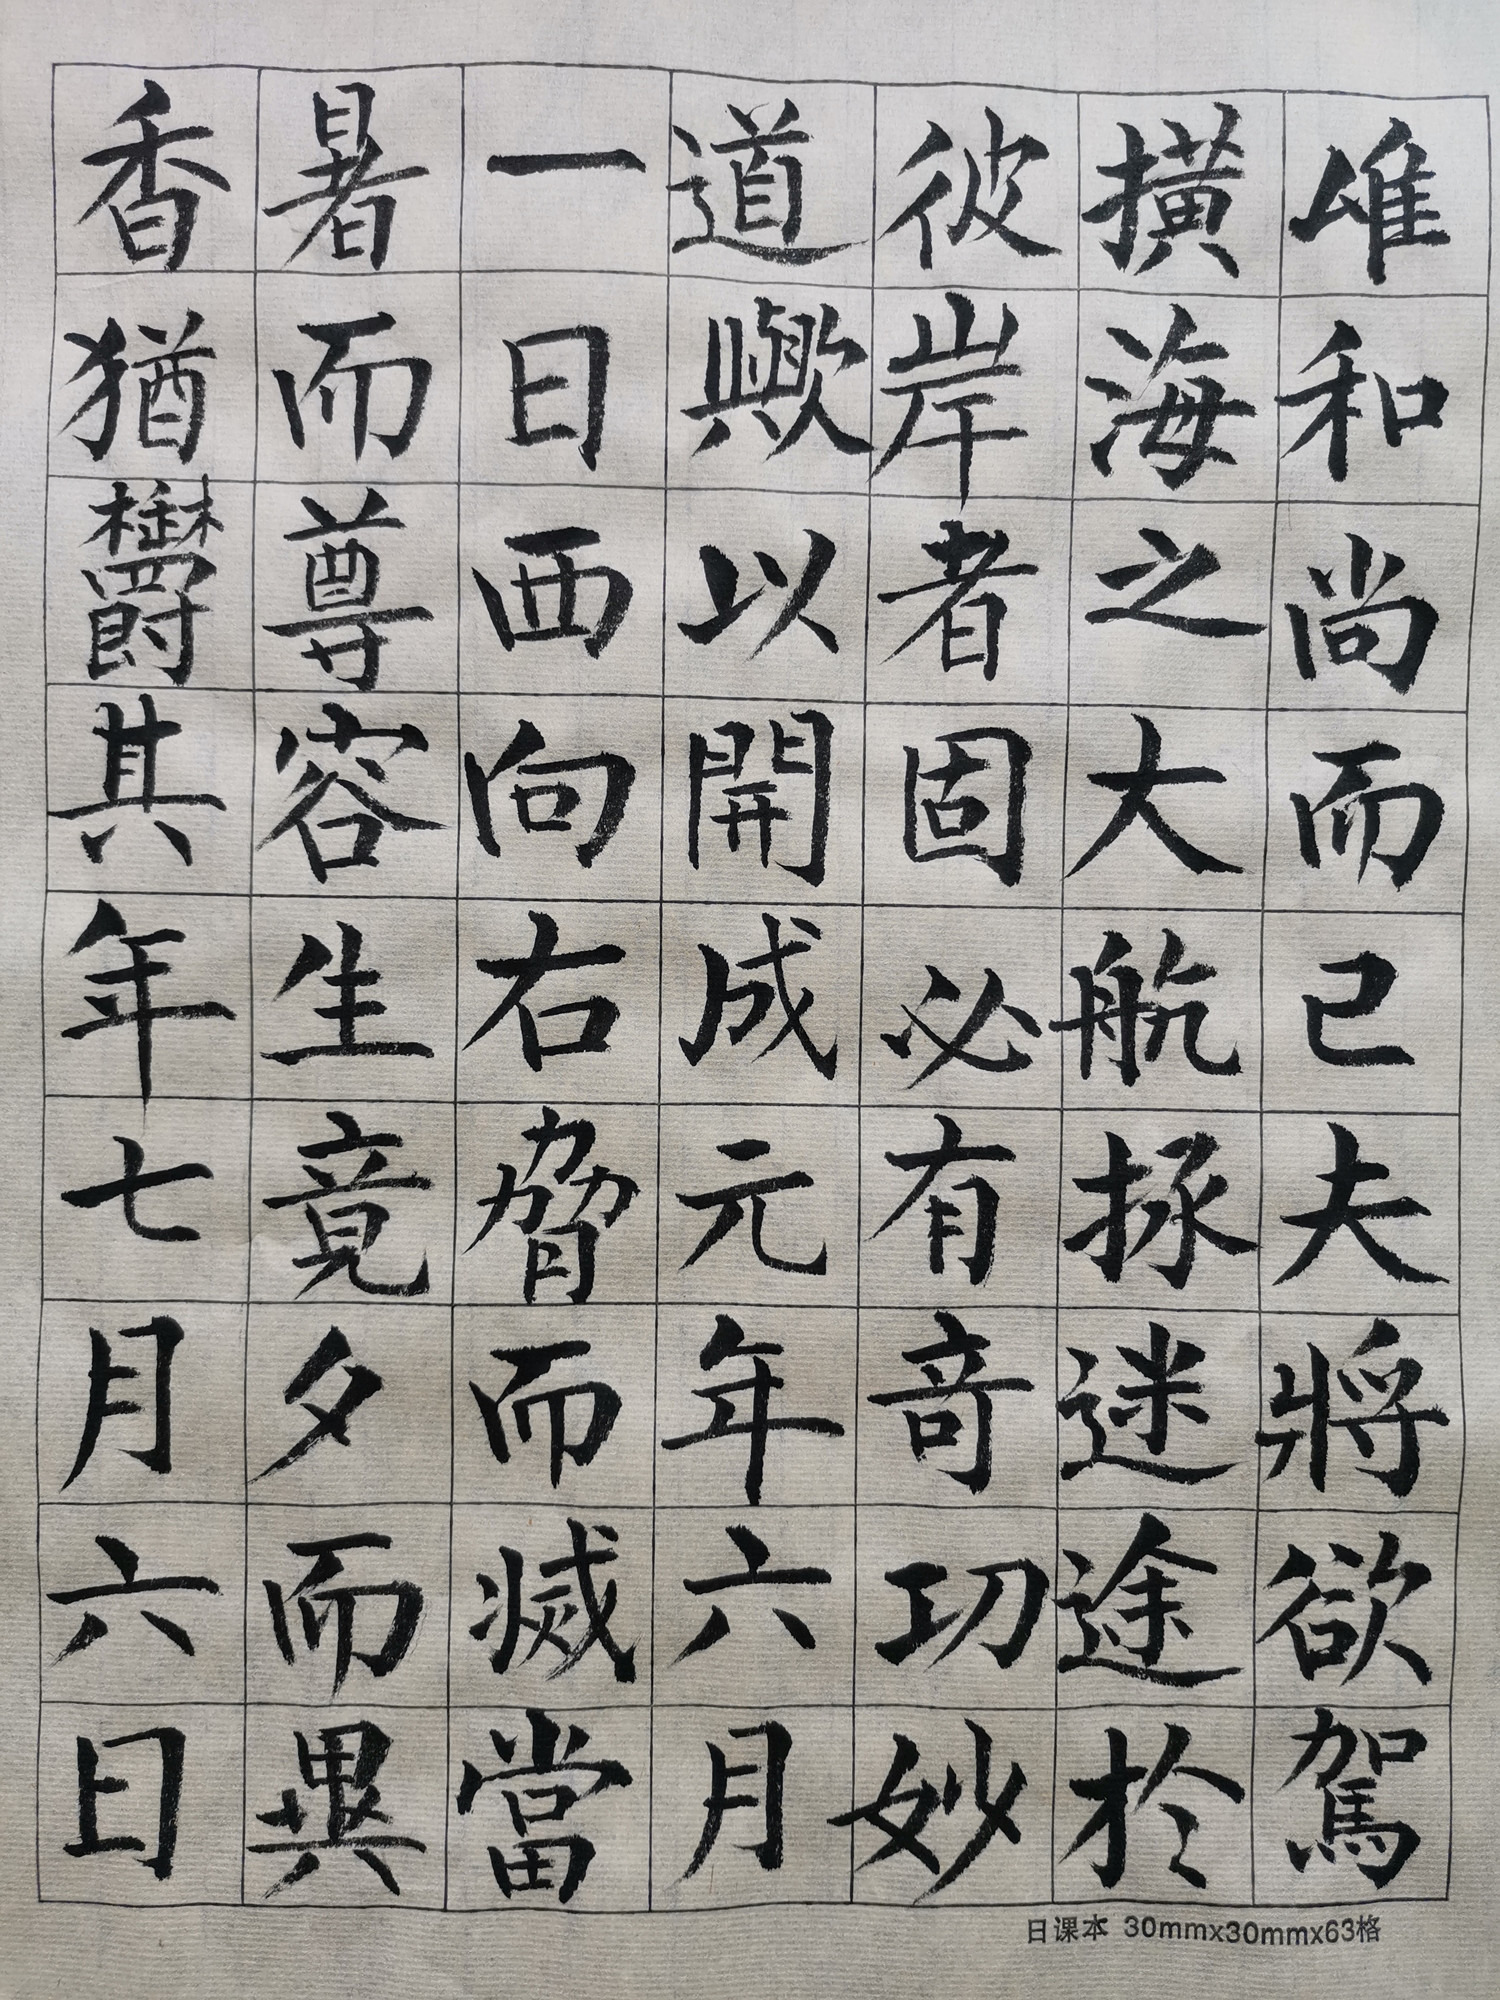 唯和尚而已夫將欲駕
撗海之大航拯迷途於
彼岸者固必有竒功妙
道歟以開成元年六月
一日西向右脅而滅當
暑而尊容生竟夕而異
香猶鬱其年七月六日
日课本 30mmx30mmx63格